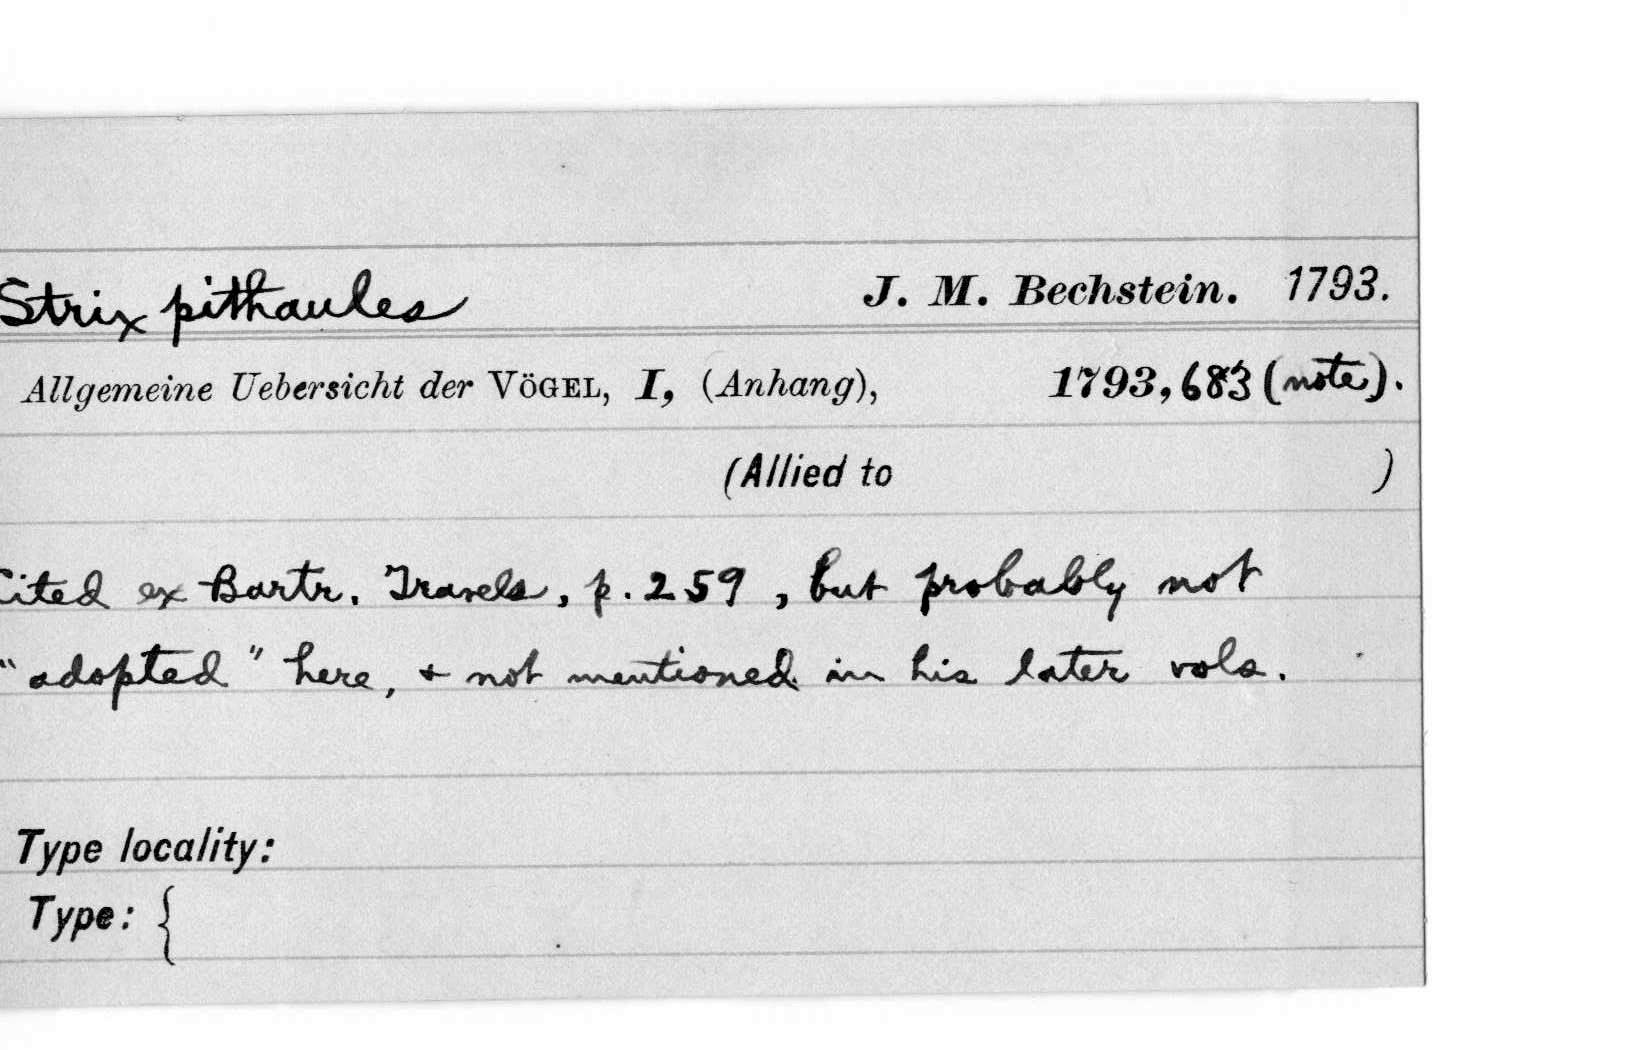 Strix pithaules J. M. Bechstein. 1793.
Allgemeine Uebersicht der VÖGEL, I, (Anhang), 1793, 683 (note).
(Allied to )
Cited ex Bartr. Travels, p. 259, but probably not
"adopted" here, + not mentioned in his later vols.
Type locality:
Type: {